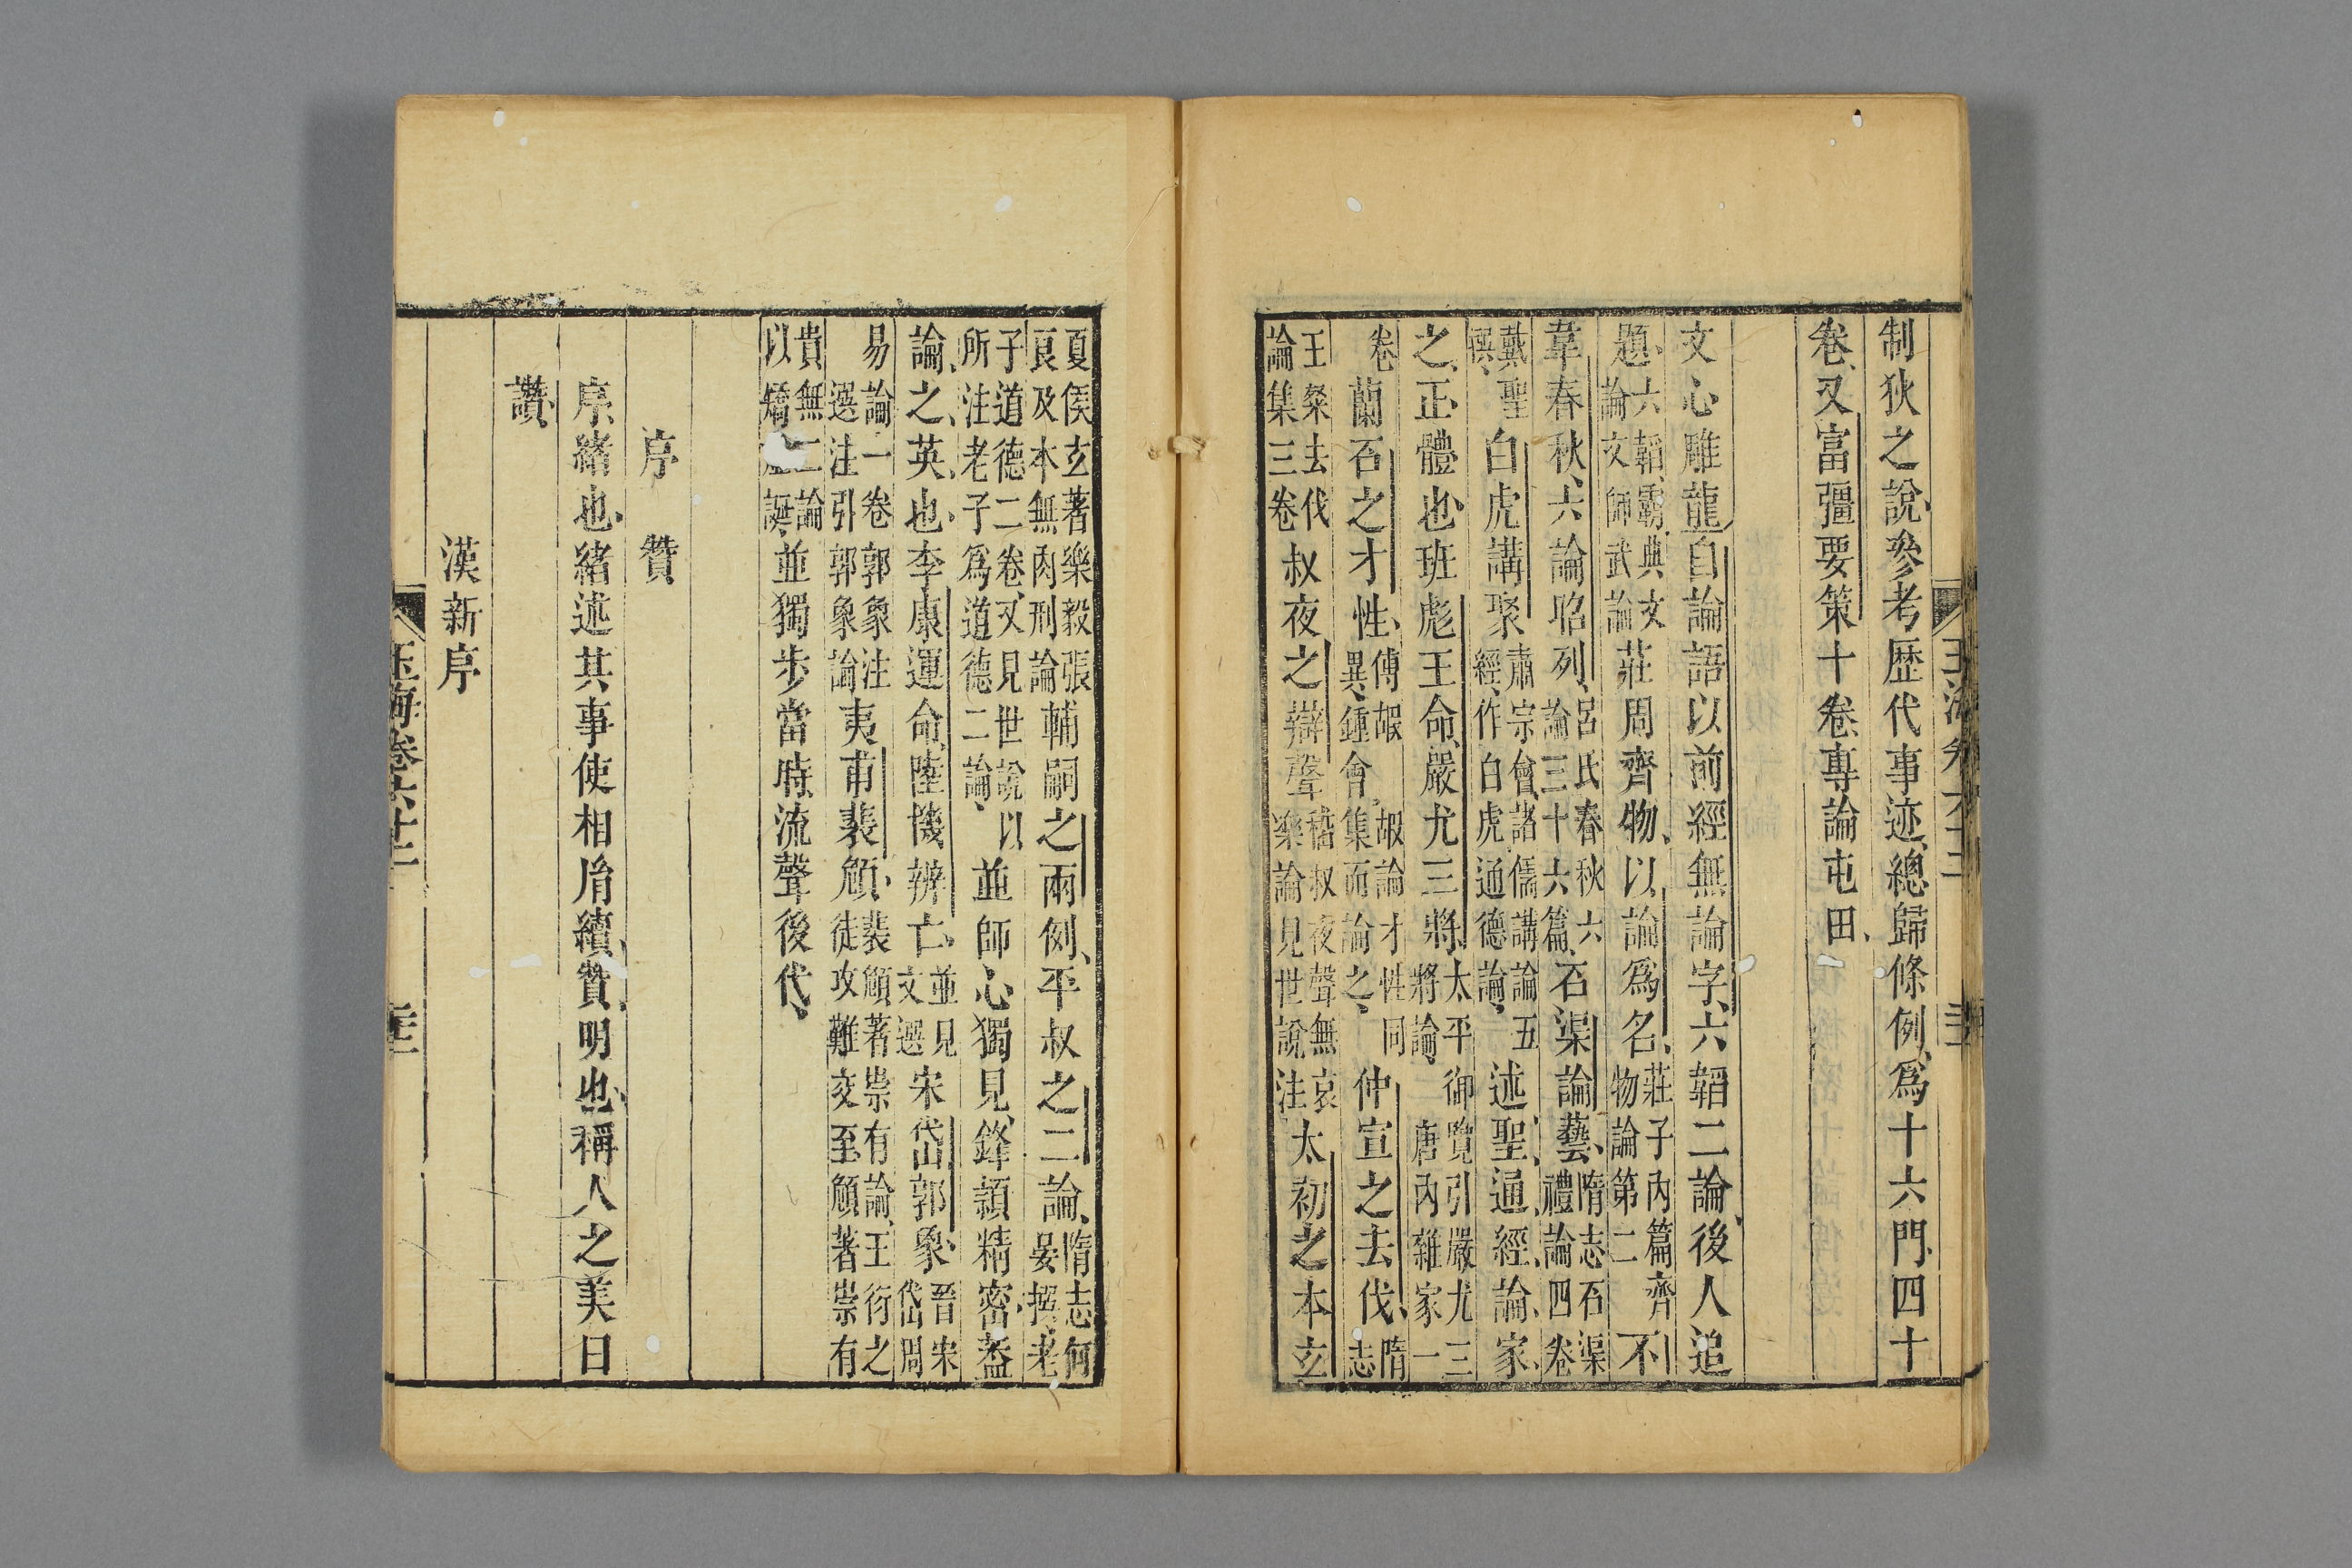 制狄之說參考歷代事迹總歸條例爲十六門四十
卷又富彊要策十卷專論屯田
文心雕龍自論語以前經無論字六韜二論後人追
題六韜霸典文論文師武論莊周齊物以論爲名莊子內篇齊物論第二不
韋春秋六論昭列呂氏春秋六論三十六篇石渠論藝隋志石渠禮論四卷
戴聖撰白虎講聚肅宗會諸儒講論五經作白虎通德論述聖通經論家
之正體也班彪王命嚴尤三將太平御覽引嚴尤三將論唐內雜家一
卷蘭石之才性傅嘏嘏論才性同異鍾會集而論之仲宣之去伐隋志
王粲去伐論集三卷叔夜之辯聲嵇叔夜聲無哀樂論見世說注太初之本玄
夏侯玄著樂毅張良及本無肉刑論輔嗣之兩例平叔之二論隋志何晏撰老
子道德二卷又見世說以所注老子爲道德二論並師心獨見鋒頴精密葢
論之英也李康運命陸機辨亡並見文選宋岱郭象晉宋岱周
易論一卷郭象注選注引郭象論夷甫裴頠裴頠著崇有論王衍之徒攻難交至頠著崇有
貴無二論以矯誕並獨步當時流聲後代
序贊
序緒也緒述其事使相胤續贊明也稱人之美曰
讚
漢新序
玉海卷六十二